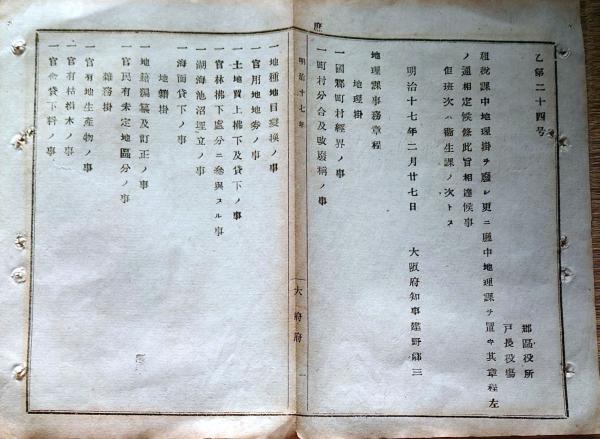 乙第二十四号
郡區役所
戸長役塲
租税課中地理掛ヲ廢シ更ニ廳中地理課ヲ置キ其章程左
ノ通相定候條此旨相達候事
但班次ハ衞生課ノ次トス
明治十七年二月廿七日
大阪府知事建野郷三
地理課事務章程
地理掛
一國郡町村經界ノ事
一町村分合及改廢稱ノ事
明治十七年
大阪府
一
一地種地目變換ノ事
一官用地地券ノ事
一土地買上拂下及貸下ノ事
一官林拂下處分ニ參與スル事
一湖海池沼埋立ノ事
一海面貸下ノ事
地籍掛
一地籍編纂及訂正ノ事
一官民有未定地區分ノ事
雜務掛
一官有地生產物ノ事
一官有枯損木ノ事
一官舍貸下料ノ事